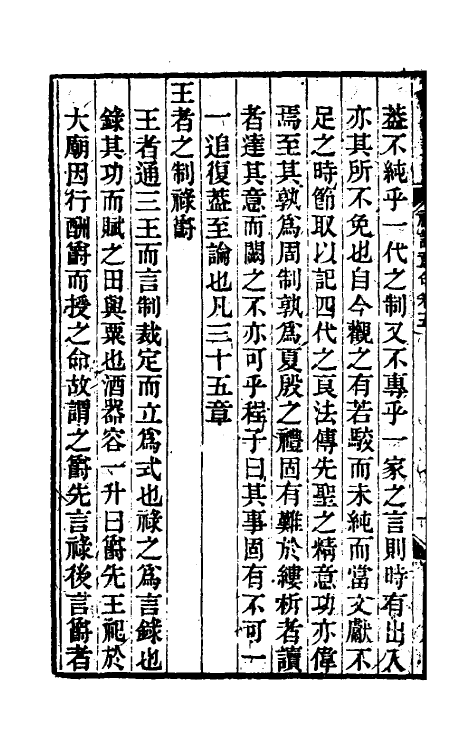 葢不純乎一代之制又不專乎一家之言則時有出入
亦其所不免也自今觀之有若駁而未純而當文獻不
足之時節取以記四代之良法傳先聖之精意功亦偉
焉至其孰爲周制孰爲夏殷之禮固有難於縷析者讀
者達其意而闕之不亦可乎程子曰其事固有不可一
一追復葢至論也凡三十五章
王者之制祿爵
王者通三王而言制裁定而立爲式也祿之爲言錄也
錄其功而賦之田與粟也酒器容一升曰爵先王祀於
大廟因行酬爵而授之命故謂之爵先言祿後言爵者